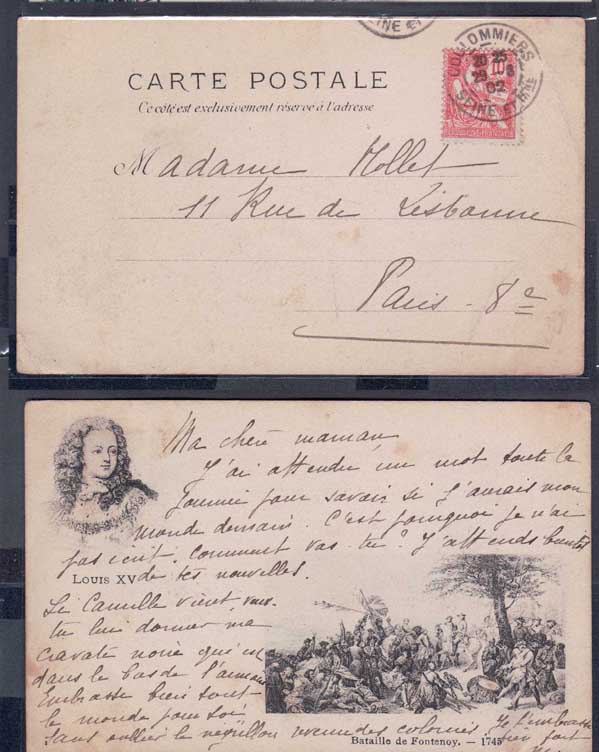 SEINE ET
COULOMMIERS
20 25
29 -8
02
SEINE ET MNE
10
CARTE POSTALE
Ce côté est exclusivement réservé à l'adresse
M
Madame Hollet
11 Rue de Lisbonne
Paris - 8e
Ma chère maman
J'ai attendu un mot toute la
journée pour savoir si j'aurais mon
monde demain. C'est pourquoi je n'ai
pas écrit. Comment vas-tu? J'attends bientôt
LOUIS XV
de tes nouvelles.
Si Camille vient, veux-
tu lui donner ma
cravate noire qui est
dans le bas de l'armoire
Embrasse bien tout
le monde pour
Sans oublier le revenu des colonies, Je t'embrasse
bien fort
Bataille de Fontenoy. — 1745